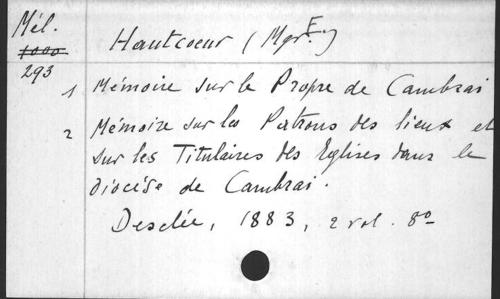 Mél.
1000
293
Hautcoeur (Mgr. E.)
1 Mémoire sur le Propre de Cambrai
2 Mémoire sur les Patrons des lieux et
sur les Titulaires des Eglises dans le
diocèse de Cambrai.
Desclée, 1883, 2 vol. 8o